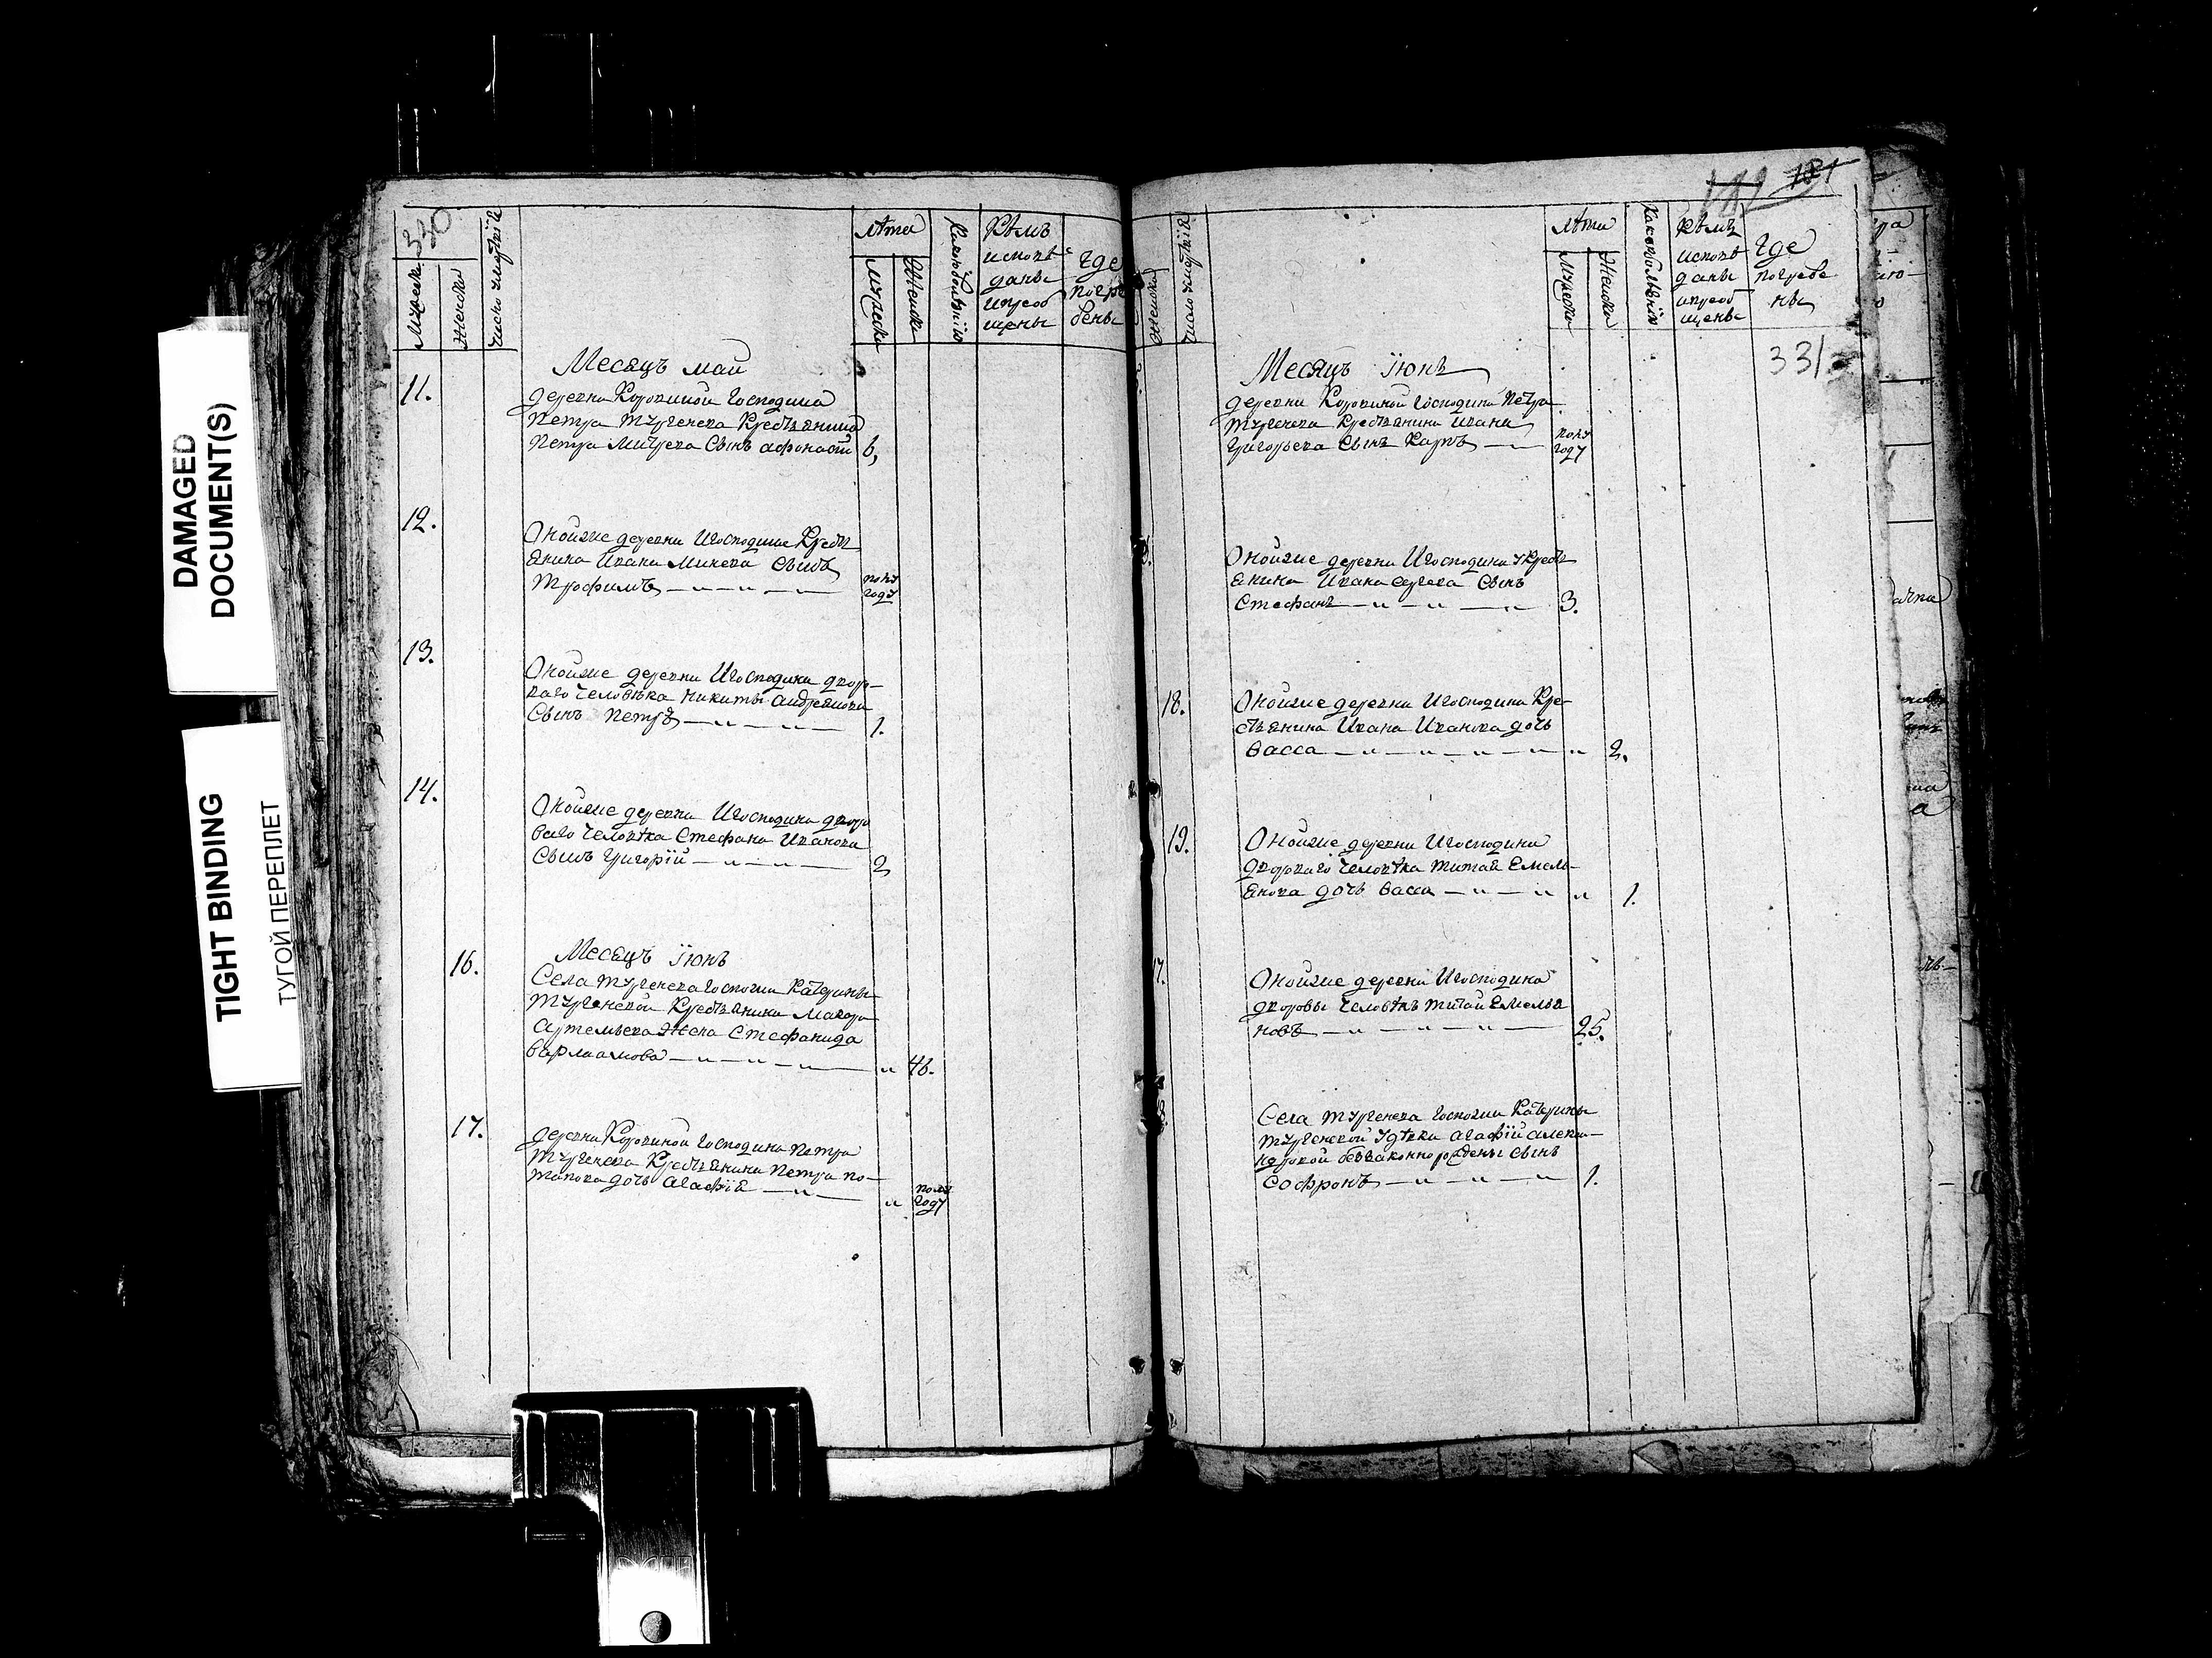 DAMAGED
DOCUMENT(S)
TIGHT BINDING
ТУГОЙ ПЕРЕПЛЕТ
330
Мужеска
Женска
Число умертвія
лѣта
Мужеска
Женска
Какою болѣзнію
Кѣмъ
исповѣ
даны
и приоб
щены
Где
погре
бены
Месяцъ май
11.
деревни Коровиной Господина
Петра Тургенева Крестьянина
Петра Мичуева Сынъ Афонасій
6,
12.
Оной же деревни И господина Кресть
янина Ивана Минеева Сынъ
Трофимъ
полу
году
13.
Оной же деревни И господина дворо-
ваго человѣка Никиты Андреянова
Сынъ Петръ
1.
14.
Оной же деревни И господина дворо
ваго человѣка Стефана Иванова
Сынъ Григорій
2
Месяцъ Іюнь
16.
Села Тургенева Госпожи Катерины
Тургеневой Крестьянина Макара
Артемьева Жена Стефанида
Варлаамова
46.
17.
деревни Коровиной Господина Петра
Тургенева Крестьянина Петра По-
тапова дочь Агафія
полу
году
181
331
Женска
Число умертвія
лѣта
Мужеска
Женска
Какою болѣзнію
Кѣмъ
исповѣ
даны
и приоб
щены
Где
погребе
ны
Месяцъ Іюнь
деревни Коровиной Господина Петра
Тургенева Крестьянина Ивана
Григорьева Сынъ Карпъ
полу
году
Оной же деревни И господина Кресть
янина Ивана Сергеева Сынъ
Стефанъ
3.
18.
Оной же деревни И господина Кре-
стьянина Ивана Иванова дочь
Васса
2.
19.
Оной же деревни И господина
Дворового человѣка Титай Емель-
янова дочь Васса
1.
17.
Оной же деревни И господина
дворовы человѣкъ Титай Емелья
новъ
25.
Села Тургенева Госпожи Катерины
Тургеневой У дѣвки Агафіи Алексан-
дровой беззаконнорожденны Сынъ
Софронъ
1.